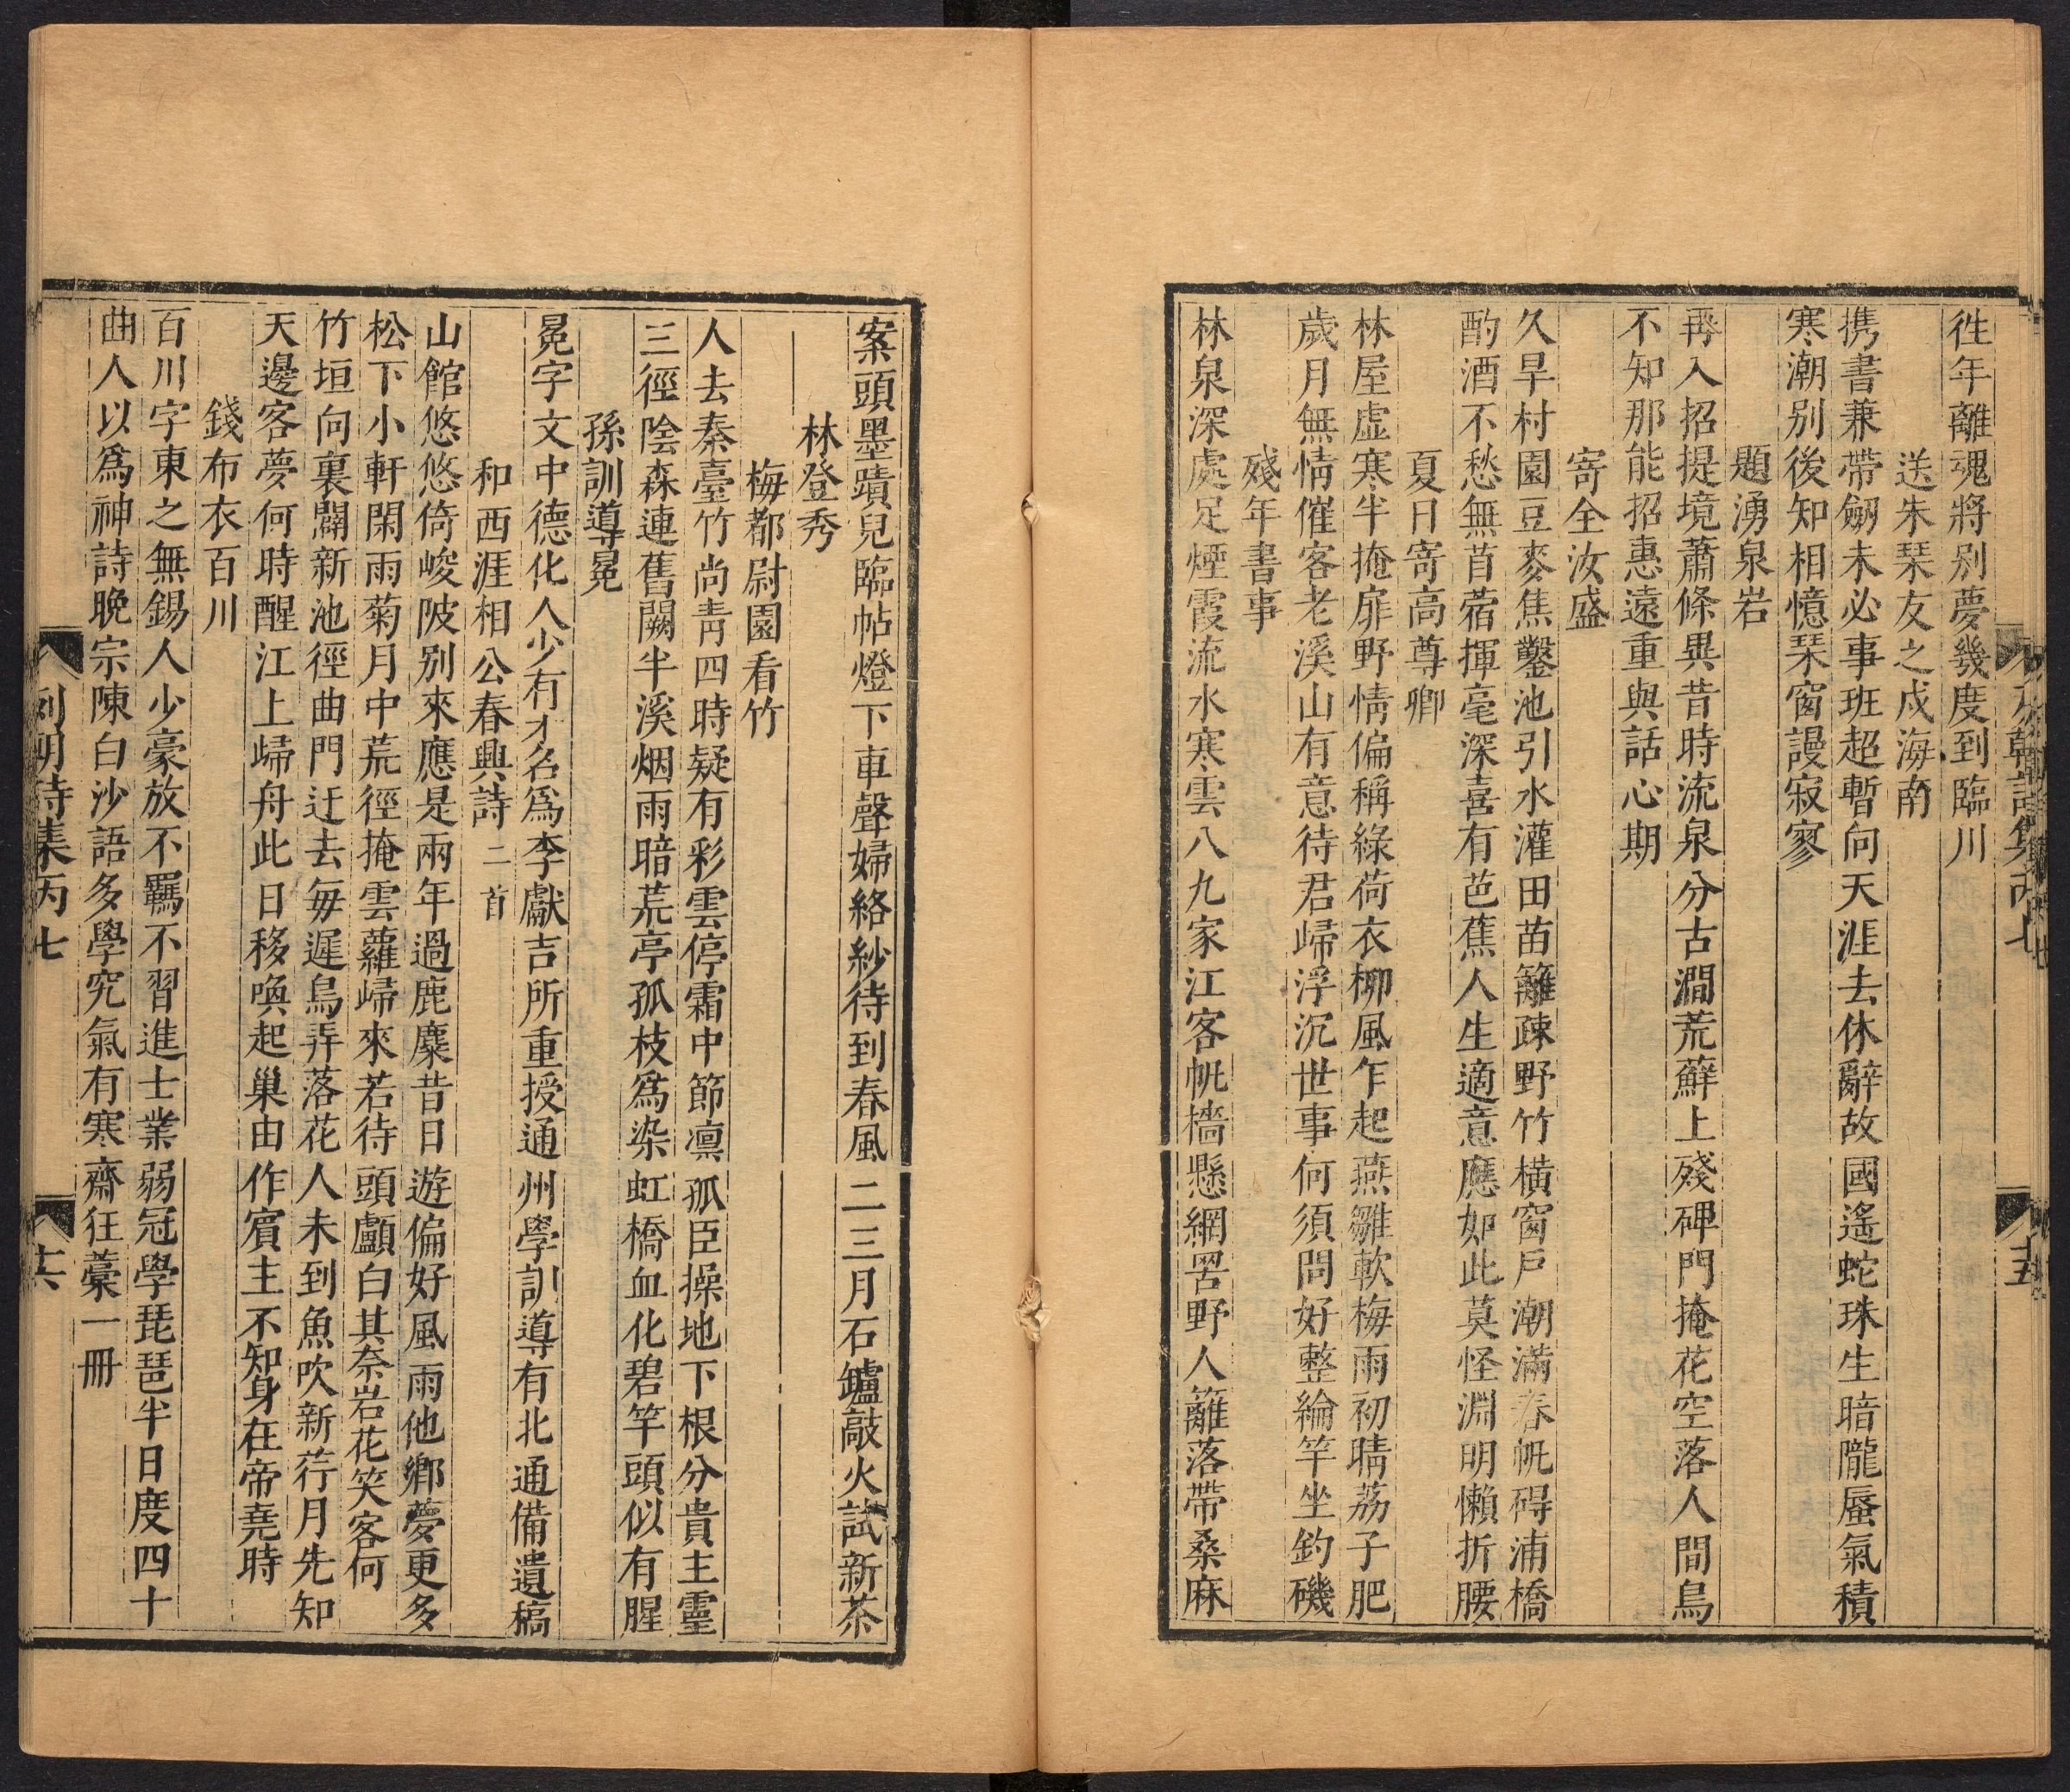 徃年離魂將別夢幾度到臨川
送朱琹友之戍海南
携書兼帶劒未必事班超暫向天涯去休辭故國遙蛇珠生暗隴蜃氣積
寒潮別後知相憶琹窗謾寂寥
題湧泉岩
再入招提境蕭條異昔時流泉分古澗荒蘚上殘碑門掩花空落人間鳥
不知那能招惠遠重與話心期
寄全汝盛
久旱村園豆麥焦鑿池引水灌田苗籬疎野竹橫窗戶潮滿春帆碍浦橋
酌酒不愁無苜蓿揮毫深喜有芭蕉人生適意應如此莫怪淵明懶折腰
夏日寄高尊卿
林屋虛寒半掩扉野情偏稱綠荷衣柳風乍起燕雛軟梅雨初晴荔子肥
歲月無情催客老溪山有意待君歸浮沉世事何須問好整綸竿坐釣磯
殘年書事
林泉深處足煙霞流水寒雲八九家江客帆檣懸網罟野人籬落帶桑麻
案頭墨蹟兒臨帖燈下車聲婦絡紗待到春風二三月石鑪敲火試新茶
林登秀
梅都尉園看竹
人去秦臺竹尚靑四時疑有彩雲停霜中節凛孤臣操地下根分貴主靈
三徑陰森連舊闕半溪烟雨暗荒亭孤枝爲染虹橋血化碧竿頭似有腥
孫訓導冕
冕字文中德化人少有才名爲李獻吉所重授通州學訓導有北通備遺稿
和西涯相公春興詩二首
山館悠悠倚峻陂別來應是兩年過鹿麋昔日遊偏好風雨他鄉夢更多
松下小軒閑雨菊月中荒徑掩雲蘿歸來若待頭顱白其奈岩花笑客何
竹垣向裏闢新池徑曲門迂去每遲鳥弄落花人未到魚吹新荇月先知
天邊客夢何時醒江上歸舟此日移喚起巢由作賓主不知身在帝堯時
錢布衣百川
百川字東之無錫人少豪放不羈不習進士業弱冠學琵琶半日度四十
曲人以爲神詩晚宗陳白沙語多學究氣有寒齋狂藁一冊
列朝詩集丙七
十六